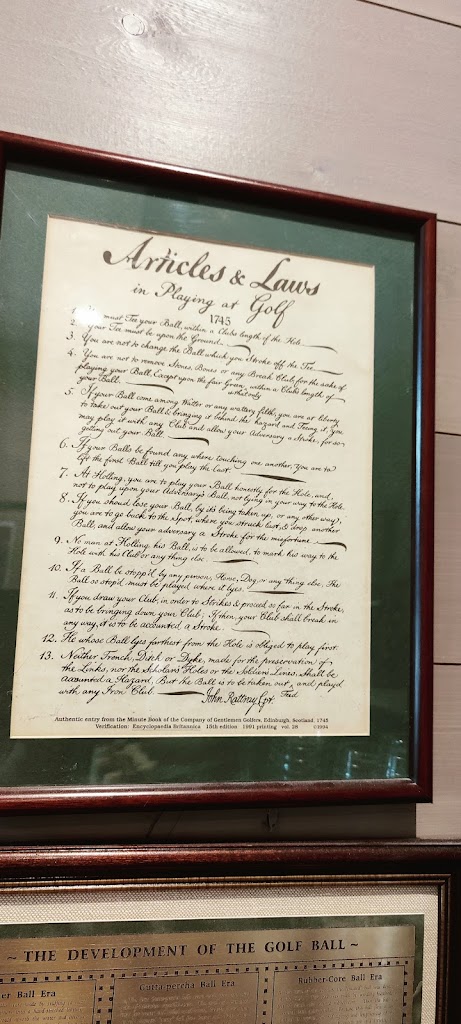 Articles & Laws
in Playing at Golf
1745
1. You must Tee your Ball, within a Clubs length of the Hole.
2. Your Tee must be upon the Ground.
3. You are not to change the Ball which you Stroke off the Tee
4. You are not to remove Stones, Bones or any Break Club, for the sake of
playing your Ball, Except upon the fair Green, within a Clubs length of
your Ball. & that only
5. If your Ball come among Watter or any wattery filth, you are at liberty
to take out your Ball & bringing it behind the hazard and Teeing it, you
may play it with any Club and allow your Adversary a Stroke, for so
getting out your Ball.
6. If your Balls be found any where touching one another, You are to
lift the first Ball till you play the last.
7. At Holling, you are to play your Ball honestly for the Hole, and,
not to play upon your Adversary's Ball, not lying in your way to the Hole.
8. If you should lose your Ball, by its being taken up, or any other way,
you are to go back to the Spot, where you struck last & drop another
Ball, and allow your adversary a Stroke for the misfortune.
9. No man at Holling his Ball, is to be allowed, to mark his way to the
Hole with his Club or any thing else.
10. If a Ball be stopp'd by any person, Horse, Dog or any thing else, The
Ball so stop'd must be played where it lyes.
11. If you draw your Club, in order to Strike & proceed so far in the Stroke,
as to be bringing down your Club; If then, your Club shall break in
any way, it is to be accounted a Stroke.
12. He whose Ball lyes farthest from the Hole is obliged to play first.
13. Neither Trench, Ditch or Dyke, made for the preservation of
the Links, nor the Scholar's Holes or the Soldier's Lines, Shall be
accounted a Hazard, But the Ball is to be taken out, and play'd
with any Iron Club Teed
John Rattray Cpt.
Authentic entry from the Minute Book of the Company of Gentlemen Golfers, Edinburgh, Scotland, 1745
Verification: Encyclopaedia Britannica 15th edition 1991 printing vol. 28 ©1994
~ THE DEVELOPMENT OF THE GOLF BALL ~
er Ball Era
Gutta percha Ball Era
Rubber-Core Ball Era